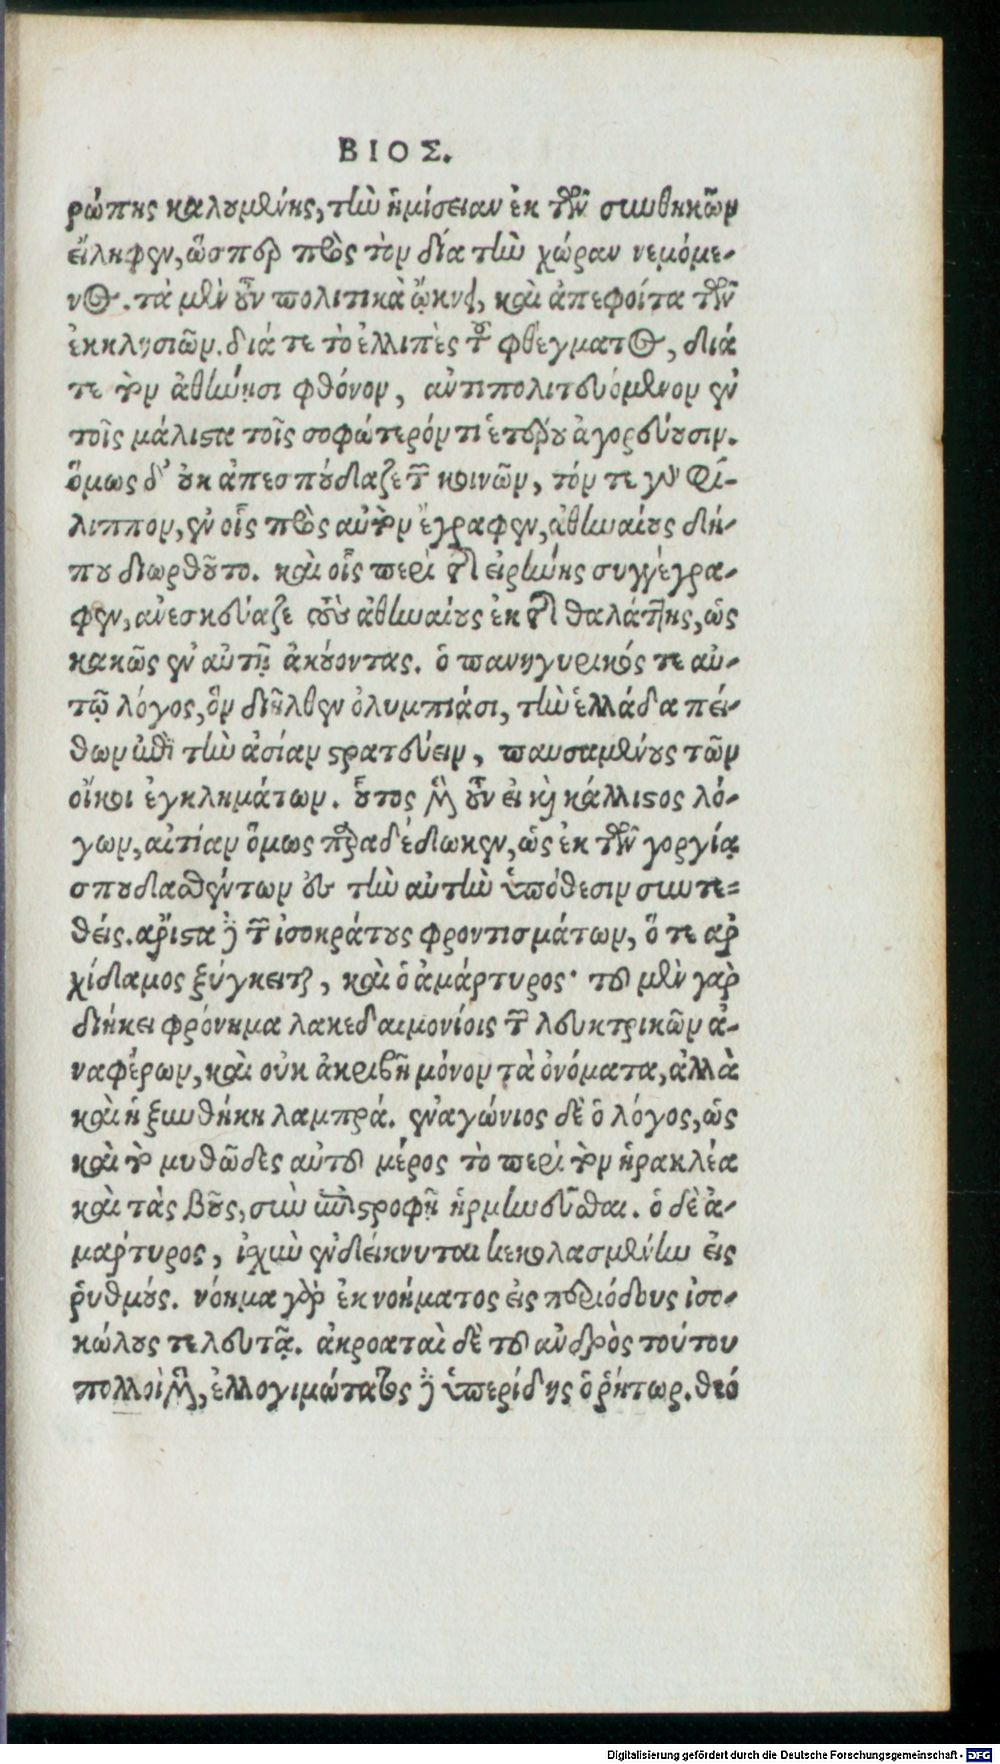 ΒΙΟΣ.
ρώπης καλουμένης, τὴν ἡμίσειαν ἐκ τῶν συνθηκῶν
εἴληφεν, ὥσπερ πρὸς τὸν δία τὴν χώραν νεμόμε-
νος. τὰ μὲν οὖν πολιτικὰ ὤκνει, καὶ ἀπεφοίτα τῶν
ἐκκλησιῶν. διά τε τὸ ἐλλιπὲς τοῦ φθέγματος, διά
τε τὸν ἀθήνησι φθόνον, ἀντιπολιτευόμενον ἐν
τοῖς μάλιστα τοῖς σοφώτερόν τι ἑτέρου ἀγορεύουσιν.
ὅμως δ' οὐκ ἀπεσπούδαζε τῶν κοινῶν, τόν τε γὰρ Φί-
λιππον, ἐν οἷς πρὸς αὐτὸν ἔγραφεν, ἀθηναίοις δή-
που διωρθοῦτο. καὶ οἷς περὶ τῆς εἰρήνης συγγέγρα-
φεν, ἀνεσκεύαζε τοὺς ἀθηναίους ἐκ τῆς θαλάττης, ὡς
κακῶς ἐν αὐτῇ ἀκούοντας. ὁ πανηγυρικός τε αὐ-
τῷ λόγος, ὃν διῆλθεν ὀλυμπιάσι, τὴν ἑλλάδα πεί-
θων ἐπὶ τὴν ἀσίαν στρατεύειν, παυσαμένους τῶν
οἴκοι ἐγκλημάτων. οὗτος μὲν οὖν εἰ καὶ κάλλιστος λό-
γων, αἰτίαν ὅμως παραδέδωκεν, ὡς ἐκ τῶν γοργίᾳ
σπουδασθέντων ἐς τὴν αὐτὴν ὑπόθεσιν συντε-
θείς. ἄριστα δὲ τῶν ἰσοκράτους φροντισμάτων, ὅ τε ἀρ
χίδαμος ξύγκειται, καὶ ὁ ἀμάρτυρος· τοῦ μὲν γὰρ
διήκει φρόνημα λακεδαιμονίοις τῶν λευκτρικῶν ἀ-
ναφέρων, καὶ οὐκ ἀκριβῆ μόνον τὰ ὀνόματα, ἀλλὰ
καὶ ἡ ξυνθήκη λαμπρά. ἐναγώνιος δὲ ὁ λόγος, ὡς
καὶ τὸ μυθῶδες αὐτοῦ μέρος τὸ περὶ τὸν ἡρακλέα
καὶ τὰς βοῦς, σὺν ἐπιστροφῇ ἡρμηνεῦσθαι. ὁ δὲ ἀ-
μάρτυρος, ἰχὺν ἐνδείκνυται κεκολασμένην εἰς
ῥυθμούς. νόημα γὰρ ἐκ νοήματος εἰς περιόδους ἰσο-
κώλους τελευτᾷ. ἀκροαταὶ δὲ τοῦ ἀνδρὸς τούτου
πολλοὶ μὲν, ἐλλογιμώτατος δὲ ὑπερίδης ὁ ῥήτωρ. θεό
Digitalisierung gefördert durch die Deutsche Forschungsgemeinschaft - DFG